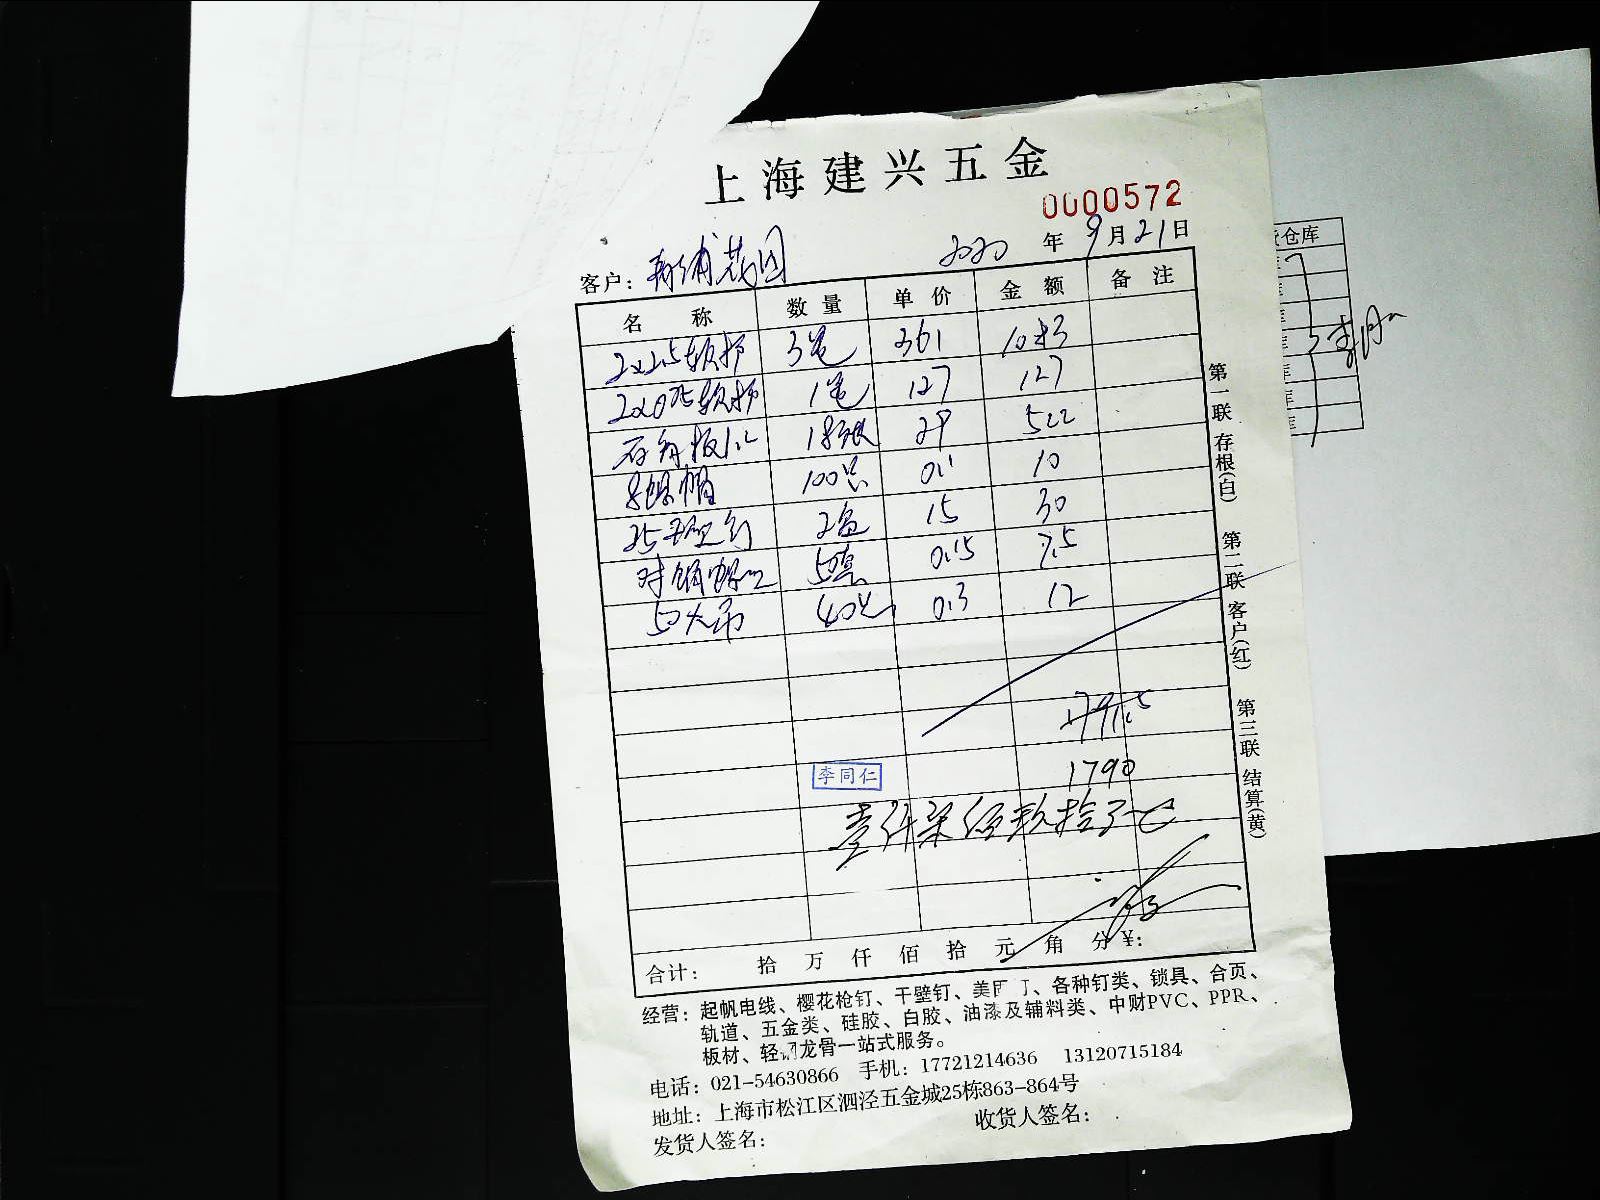 上海建兴五金
0000572
客户： 花园 2020 年 9 月 21 日
名 称 数 量 单 价 金 额 备 注
2x2.5软护 3卷 361 1083
2x0.75软护 1卷 127 127
石膏板1.2 18张 29 522
8螺帽 100只 0.1 10
25 钉 2盒 15 30
50套 0.15 7.5
50大吊 40只 0.3 12
1791.5
1790
李同仁
壹仟柒佰玖拾元
合计： 拾 万 仟 佰 拾 元 角 分 ¥:
经营：起帆电线、樱花枪钉、干壁钉、美 、各种钉类、锁具、合页、
轨道、五金类、硅胶、白胶、油漆及辅料类、中财PVC、PPR、
板材、轻钢龙骨一站式服务。
电话：021-54630866 手机：17721214636 13120715184
地址：上海市松江区泗泾五金城25栋863-864号
发货人签名： 收货人签名：
第一联 存根(白) 第二联 客户(红) 第三联 结算(黄)
仓库